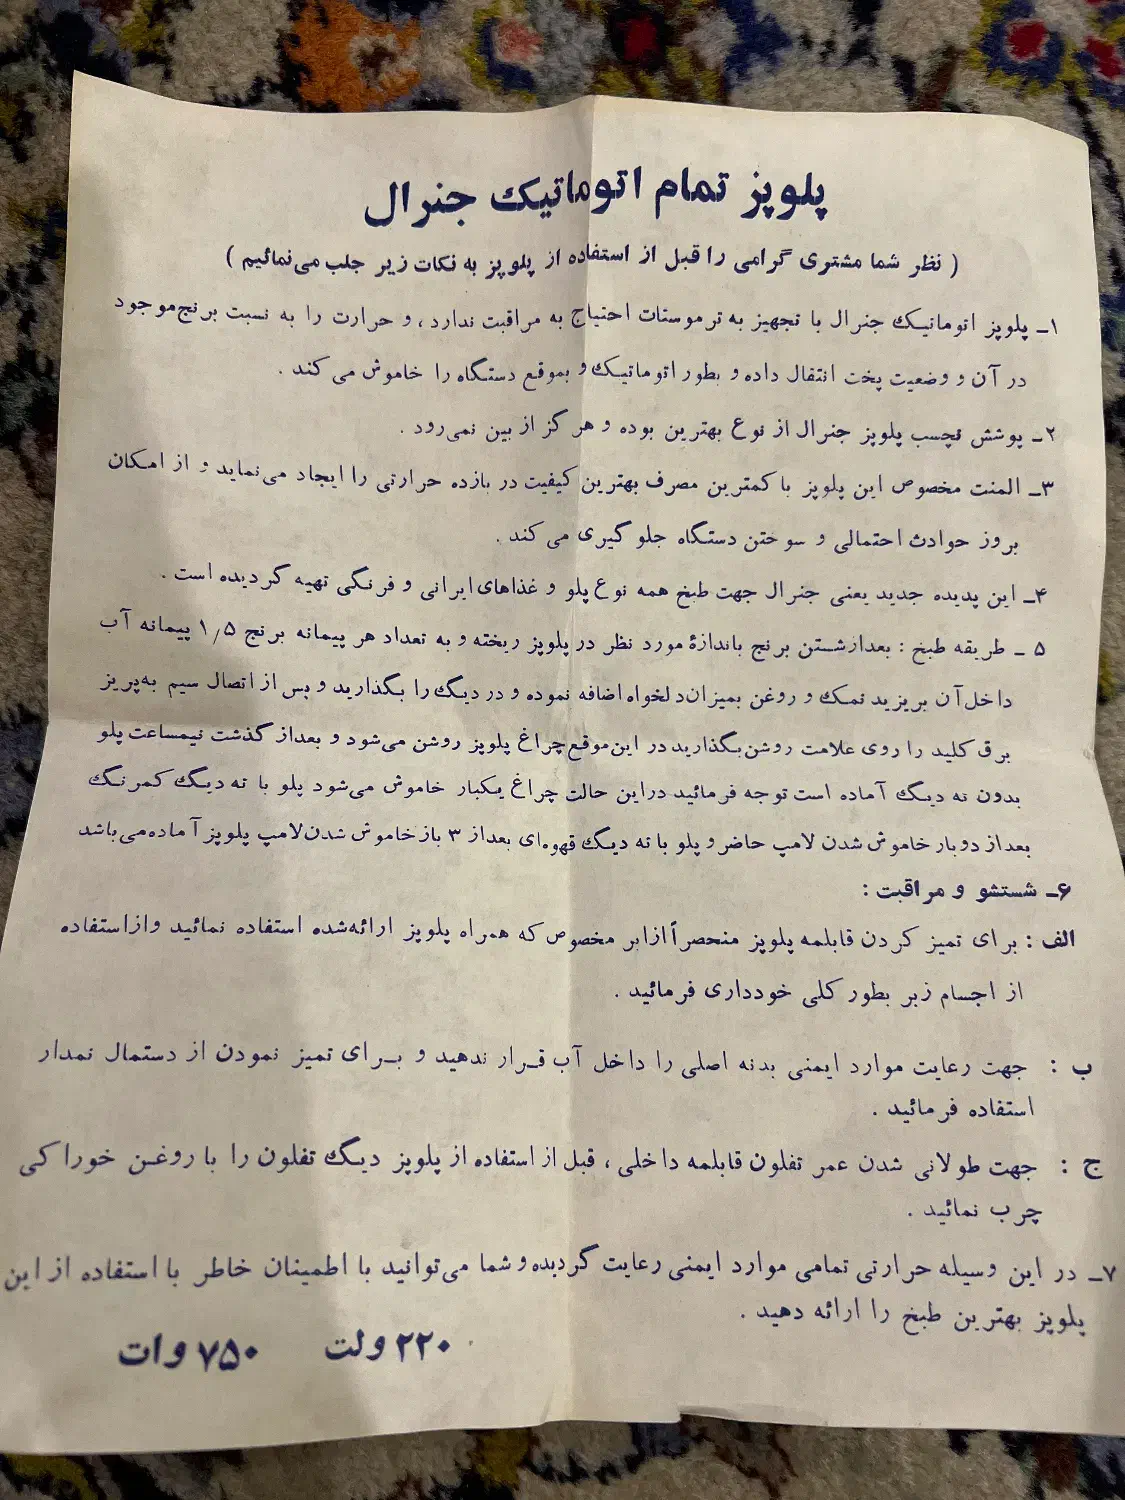 پلوپز تمام اتوماتیک جنرال
( نظر شما مشتری گرامی را قبل از استفاده از پلوپز به نکات زیر جلب می‌نمائیم )
۱ـ پلوپز اتوماتیک جنرال با تجهیز به ترموستات احتیاج به مراقبت ندارد ، و حرارت را به نسبت برنج موجود
در آن و وضعیت پخت انتقال داده و بطور اتوماتیک و بموقع دستگاه را خاموش می کند .
۲ـ پوشش نچسب پلوپز جنرال از نوع بهترین بوده و هرگز از بین نمی‌رود .
۳ـ المنت مخصوص این پلوپز با کمترین مصرف بهترین کیفیت در بازده حرارتی را ایجاد می‌نماید و از امکان
بروز حوادث احتمالی و سوختن دستگاه جلوگیری می کند .
۴ـ این پدیده جدید یعنی جنرال جهت طبخ همه نوع پلو و غذاهای ایرانی و فرنگی تهیه گردیده است .
۵ ـ طریقه طبخ : بعد از شستن برنج باندازهٔ مورد نظر در پلوپز ریخته و به تعداد هر پیمانه برنج ۱/۵ پیمانه آب
داخل آن بریزید نمک و روغن بمیزان دلخواه اضافه نموده و در دیگ را بگذارید و پس از اتصال سیم به‌پریز
برق کلید را روی علامت روشن بگذارید در این موقع چراغ پلوپز روشن می‌شود و بعد از گذشت نیمساعت پلو
بدون ته دیگ آماده است توجه فرمائید در این حالت چراغ یکبار خاموش می‌شود پلو با ته دیگ کمرنگ
بعد از دوبار خاموش شدن لامپ حاضر و پلو با ته دیگ قهوه‌ای بعد از ۳ باز خاموش شدن لامپ پلوپز آماده می‌باشد
۶ـ شستشو و مراقبت :
الف : برای تمیز کردن قابلمه پلوپز منحصراً از ابر مخصوص که همراه پلوپز ارائه‌شده استفاده نمائید و از استفاده
از اجسام زبر بطور کلی خودداری فرمائید .
ب : جهت رعایت موارد ایمنی بدنه اصلی را داخل آب قرار ندهید و برای تمیز نمودن از دستمال نمدار
استفاده فرمائید .
ج : جهت طولانی شدن عمر تفلون قابلمه داخلی ، قبل از استفاده از پلوپز دیگ تفلون را با روغن خوراکی
چرب نمائید .
۷ـ در این وسیله حرارتی تمامی موارد ایمنی رعایت گردیده و شما می‌توانید با اطمینان خاطر با استفاده از این
پلوپز بهترین طبخ را ارائه دهید .
۲۲۰ ولت ۷۵۰ وات